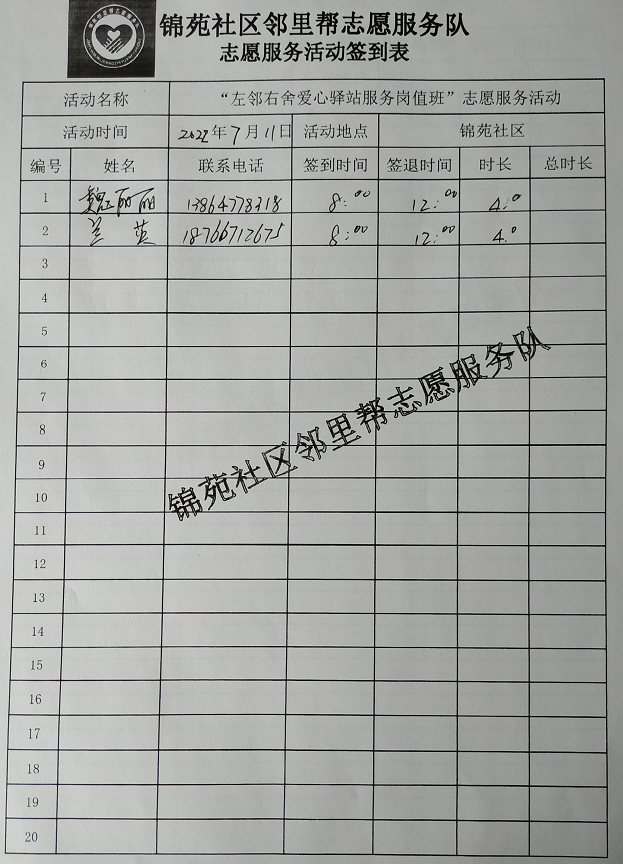 锦苑社区邻里帮志愿服务队
志愿服务活动签到表
活动名称 “左邻右舍爱心驿站服务岗值班”志愿服务活动
活动时间 2022年7月11日 活动地点 锦苑社区
编号 姓名 联系电话 签到时间 签退时间 时长 总时长
1 魏丽丽 13864778318 8:00 12:00 4.0
2 兰英 18766712675 8:00 12:00 4.0
3
4
5
6
7
8
9
10
11
12
13
14
15
16
17
18
19
20
锦苑社区邻里帮志愿服务队